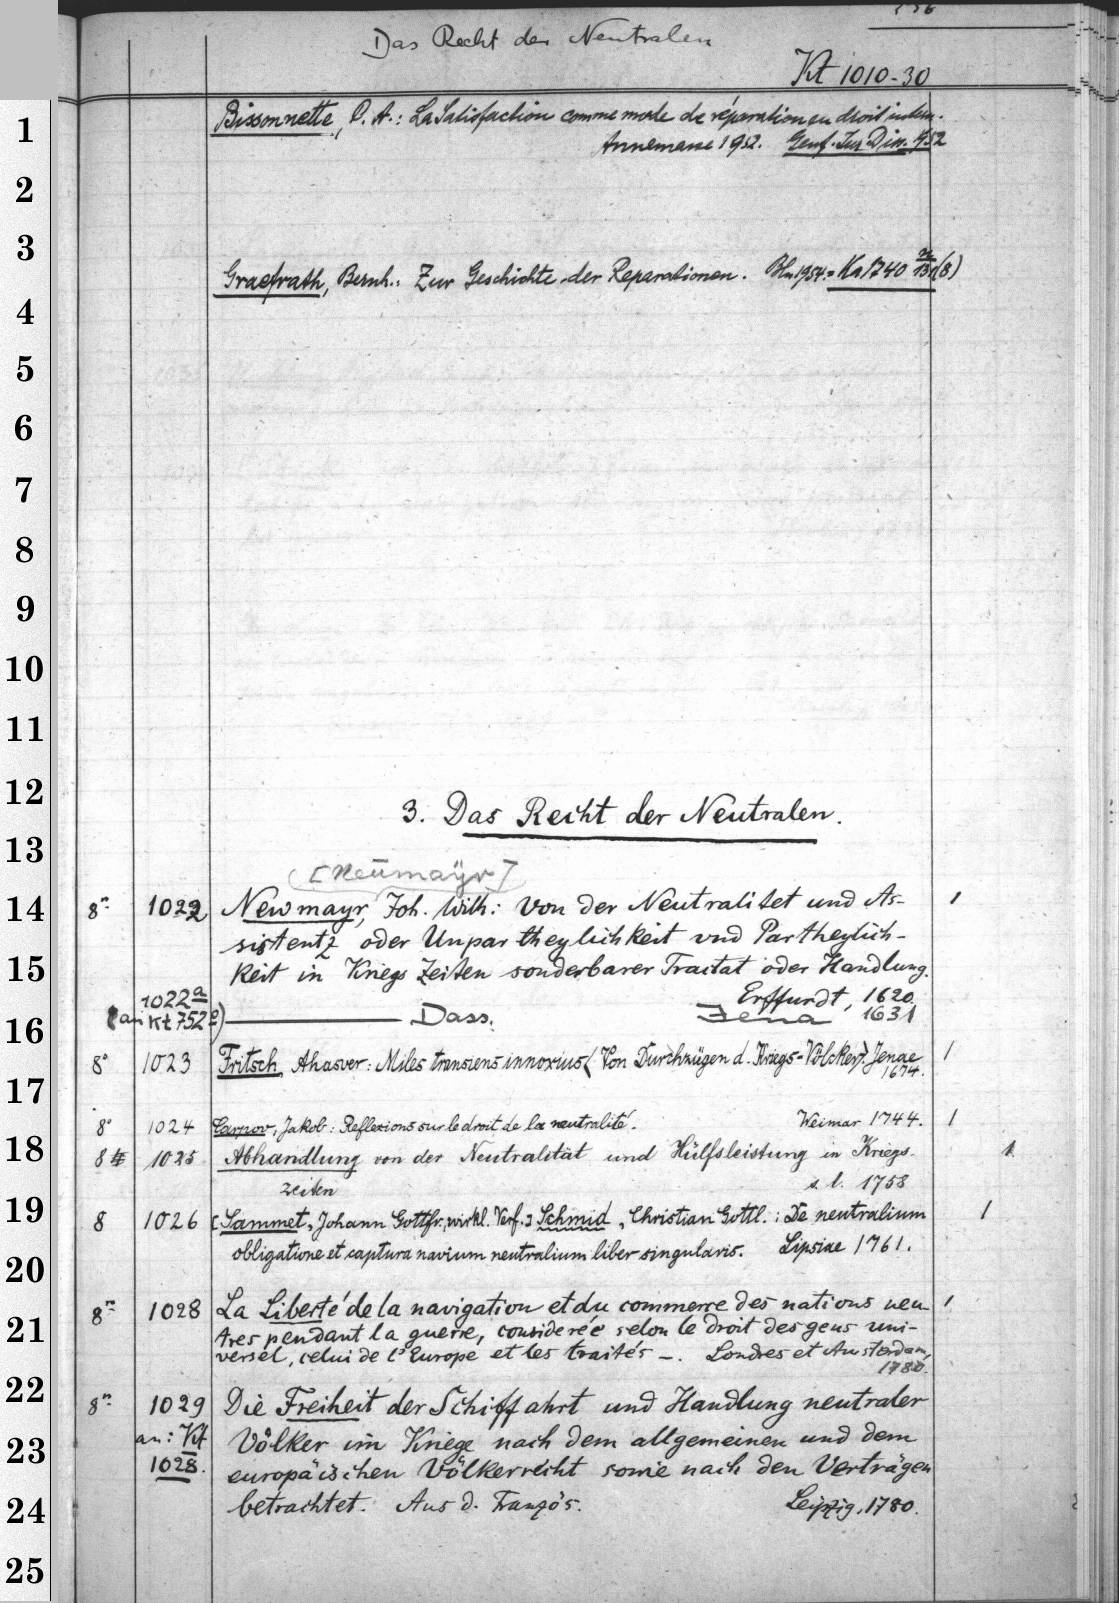 Das Recht der Neutralen
Kt 1010-30
1
Bissonnette, P. A.: La Satisfaction comme mode de réparation en droit intern.
Annemasse 1952. Genf. Jur. Diss. 452
2
3
Graefrath, Bernh.: Zur Geschichte der Reparationen. Bln 1954. = Ka 1740 (8)
4
5
6
7
8
9
10
11
12
3. Das Recht der Neutralen.
13
[Neümaÿr]
14
8° 1022 Newmayr, Joh. Wilh: Von der Neutralitet und As-
sistentz oder Unpartheylichkeit vnd Partheylich-
15
Keit in Kriegs Zeiten sonderbarer Tractat oder Handlung.
1022a
Erffurdt, 1620.
16
(an Kt 752e) ——— Dass. Jena 1631
8° 1023 Fritsch, Ahasver: Miles transiens innoxius (Von Durchzügen d. Kriegs-Völcker). Jenae 1
1674.
17
8° 1024 Carpov, Jakob: Reflexions sur le droit de la neutralité. Weimar 1744. 1
18
8 1025 Abhandlung von der Neutralität und Hülfsleistung in Kriegs- 1
zeiten s. l. 1758
19
8 1026 [Sammet, Johann Gottfr., wirkl. Verf.] Schmid, Christian Gottl.: De neutralium 1
obligatione et captura navium neutralium liber singularis. Lipsiae 1761.
20
8° 1028 La Liberté de la navigation et du commerce des nations neu 1
21
tres pendant la guerre, considerée selon le droit des gens uni-
versel, celui de l'Europe et les traités -. Londres et Amsterdam,
1780.
22
8° 1029 Die Freiheit der Schiffahrt und Handlung neutraler
an: Kt
23
Völker im Kriege nach dem allgemeinen und dem
1028.
europäischen Völkerrecht sowie nach den Verträgen
24
betrachtet. Aus d. Französ. Leipzig, 1780.
25